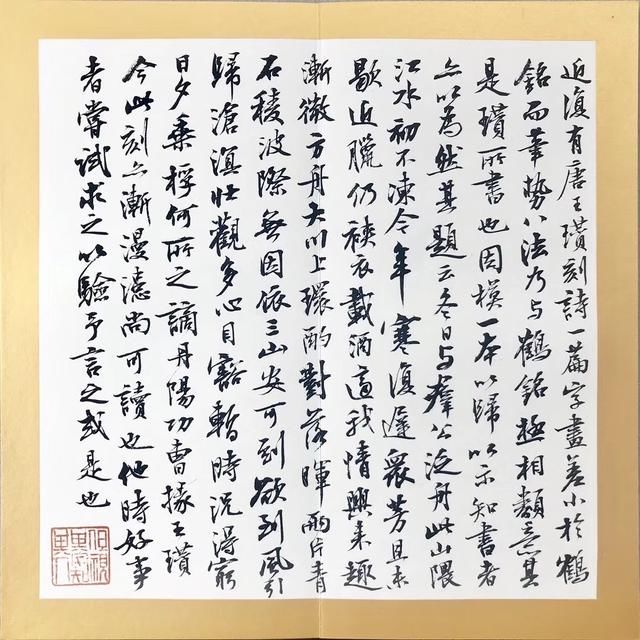 近復有唐王瓚刻詩一篇字畫差小於鶴
銘而筆勢八法乃与鶴銘極相類意其
是瓚所書也因模一本以歸以示知書者
亦以為然其題云冬日与羣公泛舟此山隈
江水初不凍今年寒復遲衆芳且未
歇近臘仍裌衣載酒適我情興來趣
漸微方舟大川上環酌對落暉兩片青
石稜波際無因依三山安可到欲到風引
歸滄溟壯觀多心目豁暫時況得窮
日夕乘桴何所之謫丹陽功曹掾王瓚
今此刻亦漸漫漶尚可讀也他時好事
者嘗試求之以驗予言之或是也